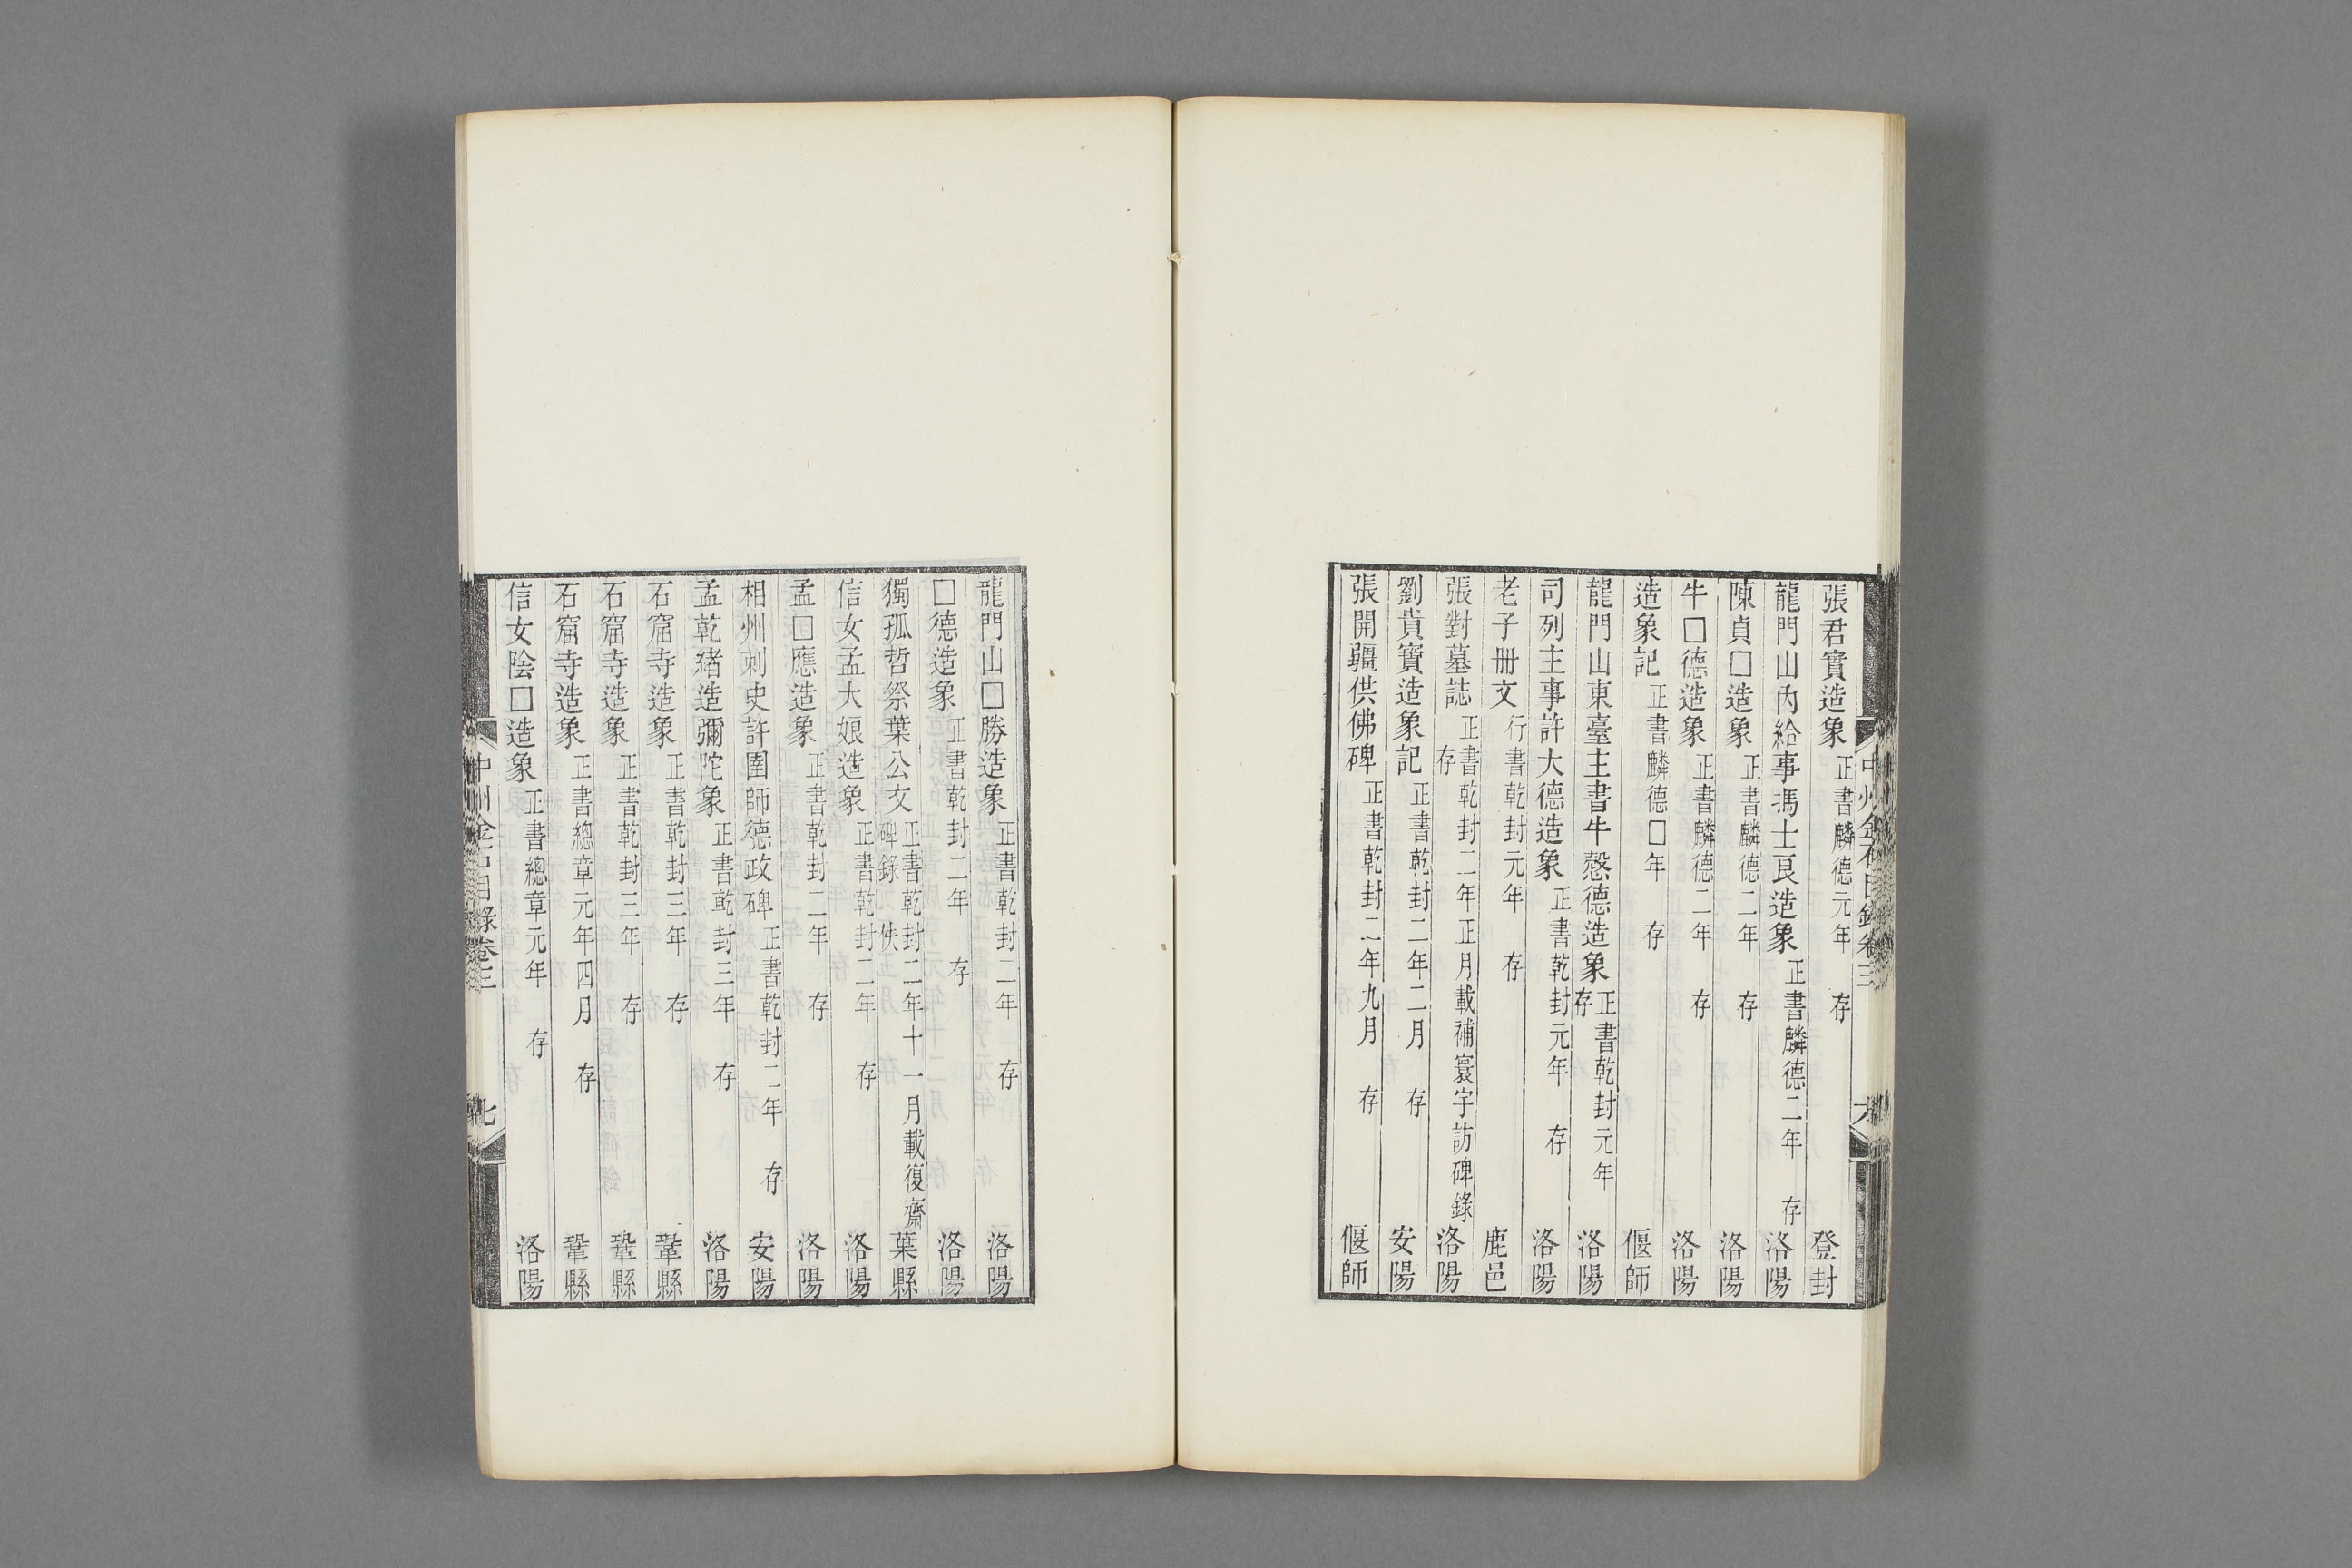 張君實造象 正書麟德元年 存 登封
龍門山內給事馮士良造象 正書麟德二年 存 洛陽
陳貞□造象 正書麟德二年 存 洛陽
牛□德造象 正書麟德二年 存 洛陽
造象記 正書麟德□年 存 偃師
龍門山東臺主書牛懿德造象 正書乾封元年 存 洛陽
司列主事許大德造象 正書乾封元年 存 洛陽
老子冊文 行書乾封元年 存 鹿邑
張對墓誌 正書乾封二年正月載補寰宇訪碑錄 存 洛陽
劉貴寶造象記 正書乾封二年二月 存 安陽
張開疆供佛碑 正書乾封二年九月 存 偃師
中州金石目錄卷三
龍門山□勝造象 正書乾封二年 存 洛陽
□德造象 正書乾封二年 存 洛陽
獨孤哲祭葉公文 正書乾封二年十一月載復齋碑錄 佚 葉縣
信女孟大娘造象 正書乾封二年 存 洛陽
孟□應造象 正書乾封二年 存 洛陽
相州刺史許圉師德政碑 正書乾封二年 存 安陽
孟乾緒造彌陀象 正書乾封三年 存 洛陽
石窟寺造象 正書乾封三年 存 鞏縣
石窟寺造象 正書乾封三年 存 鞏縣
石窟寺造象 正書總章元年四月 存 鞏縣
信女陰□造象 正書總章元年 存 洛陽
中州金石目錄卷三 七